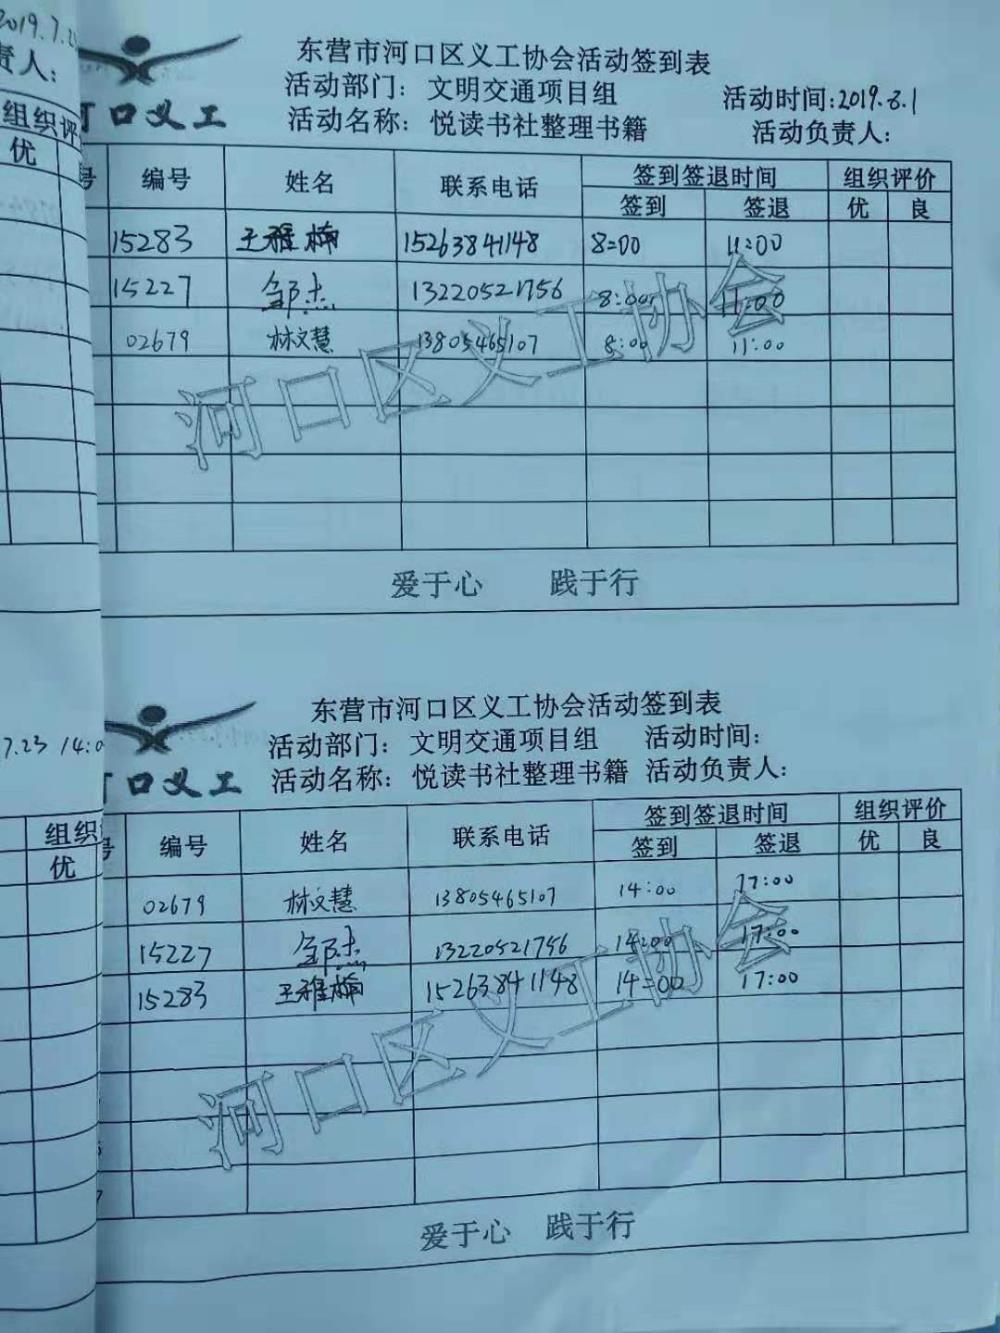 2019.7.2
责人：
组织评
优
河口义工
东营市河口区义工协会活动签到表
活动部门： 文明交通项目组 活动时间:2019.8.1
活动名称： 悦读书社整理书籍 活动负责人：
号 编号 姓名 联系电话 签到签退时间 组织评价
签到 签退 优 良
15283 王雅楠 15263841148 8:00 11:00
15227 邹杰 13220521756 8:00 11:00
02679 林文慧 13805465107 8:00 11:00
河口区义工协会
爱于心 践于行
7.23 14:0
组织
优
河口义工
东营市河口区义工协会活动签到表
活动部门： 文明交通项目组 活动时间：
活动名称： 悦读书社整理书籍 活动负责人：
号 编号 姓名 联系电话 签到签退时间 组织评价
签到 签退 优 良
02679 林文慧 13805465107 14:00 17:00
15227 邹杰 13220521756 14:00 17:00
15283 王雅楠 15263841148 14:00 17:00
河口区义工协会
爱于心 践于行